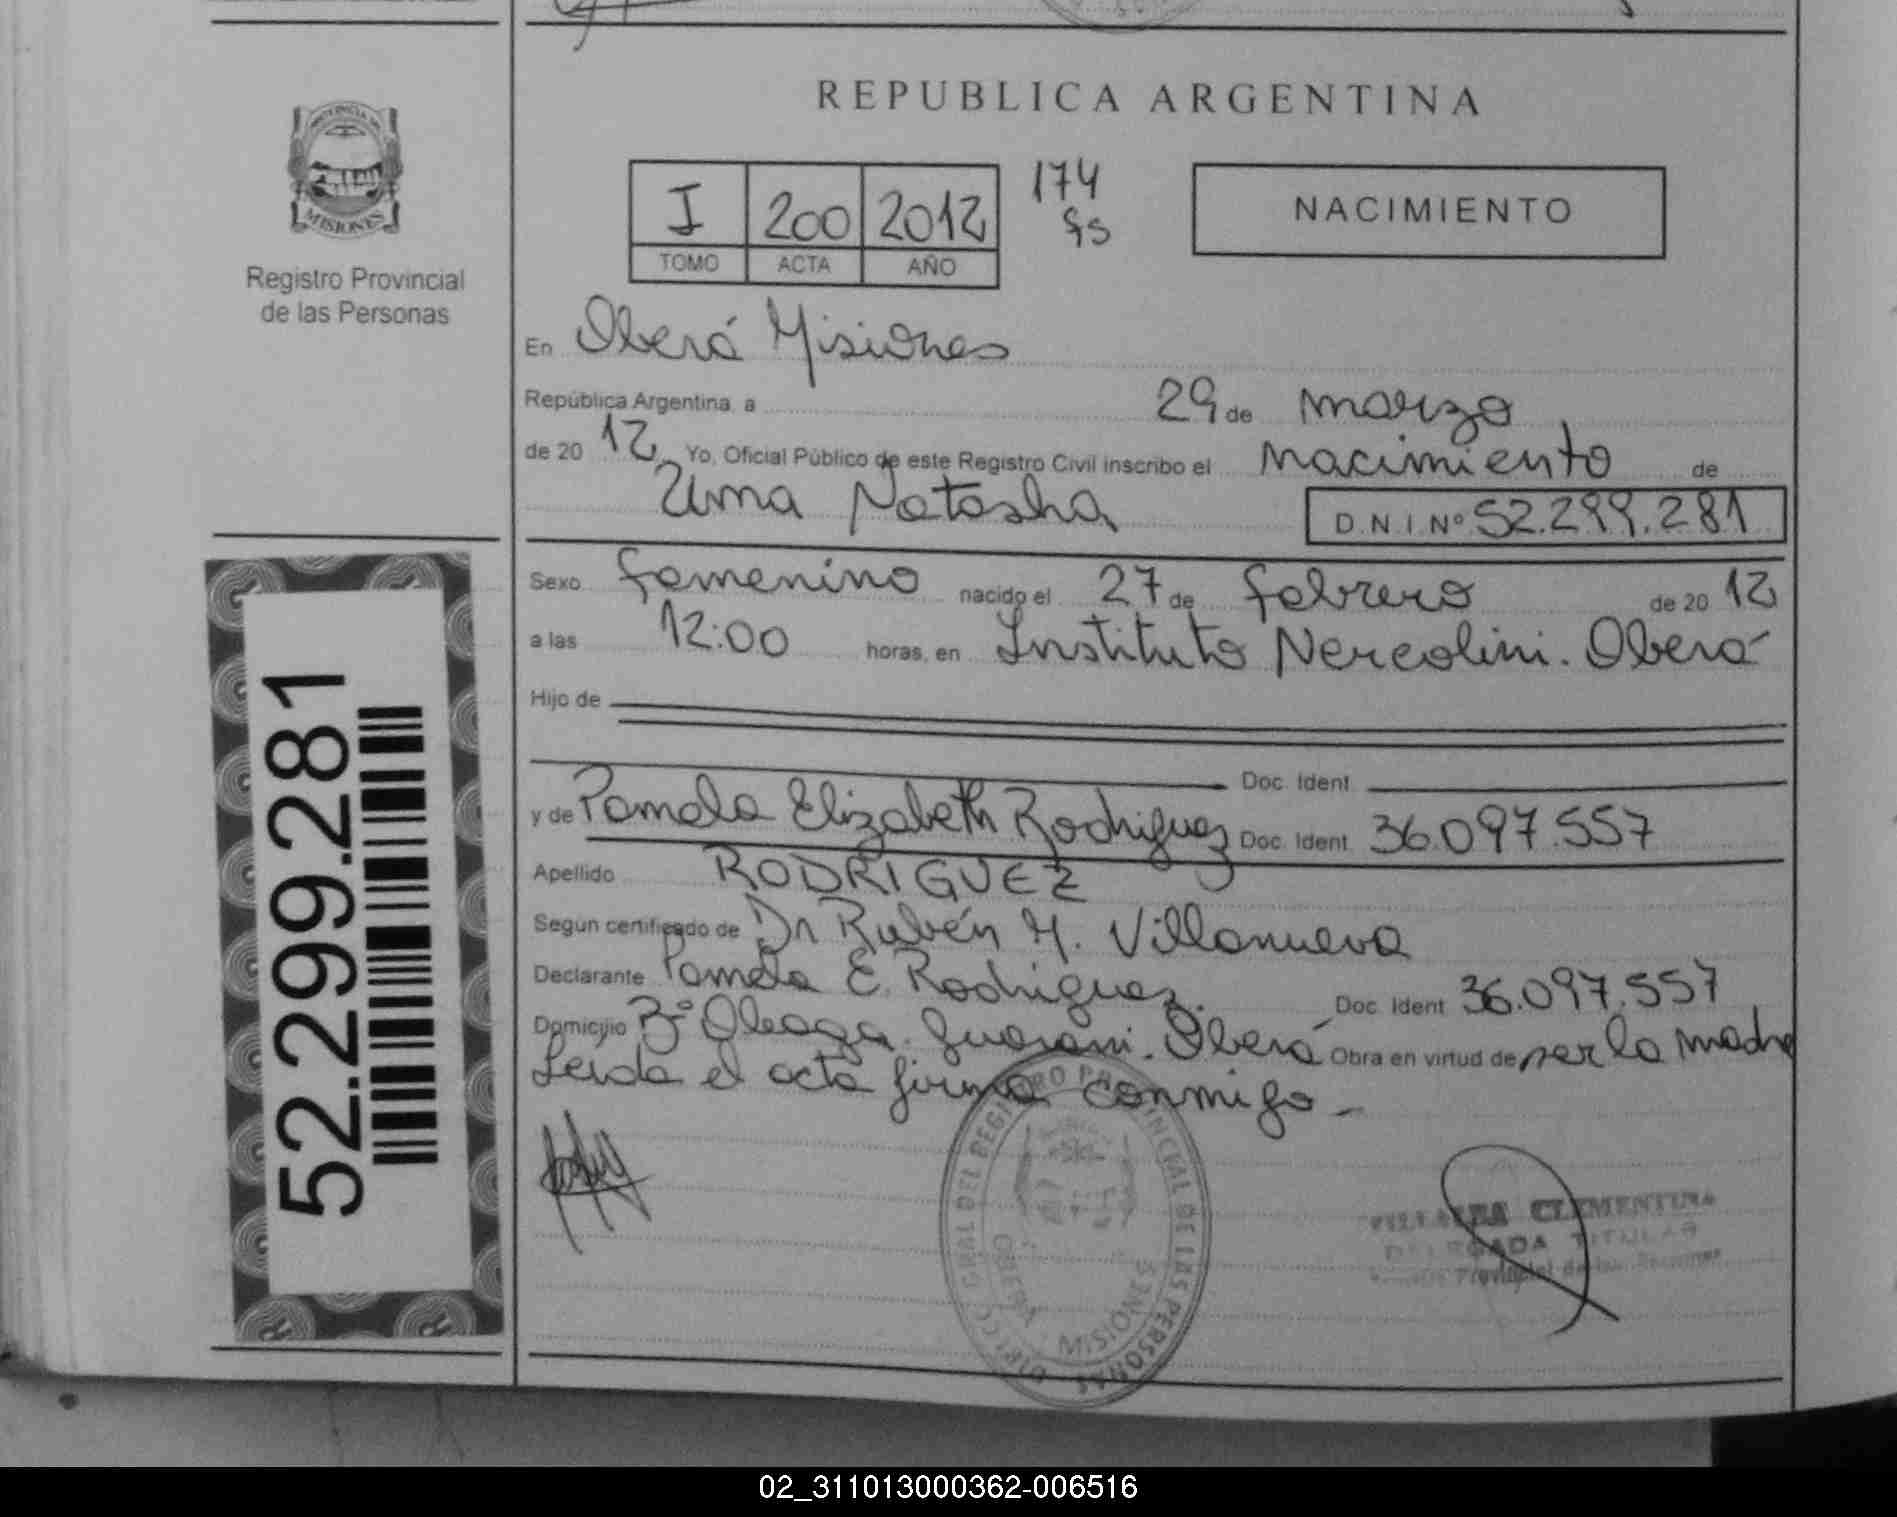 REPUBLICA ARGENTINA
PROVINCIA DE
MISIONES
Registro Provincial
de las Personas
I 200 2012
TOMO ACTA AÑO
174
fs
NACIMIENTO
En Oberá Misiones
República Argentina, a 29 de marzo
de 20 12 Yo, Oficial Público de este Registro Civil inscribo el nacimiento de
Uma Natasha D.N.I. Nº 52.299.281
Sexo femenino nacido el 27 de febrero de 20 12
a las 12:00 horas, en Instituto Nercolini. Oberá
Hijo de
Doc. Ident.
y de Pamela Elizabeth Rodriguez Doc. Ident. 36.097.557
Apellido RODRIGUEZ
Según certificado de Dr Rubén M. Villanueva
Declarante Pamela E. Rodriguez. Doc. Ident 36.097.557
Domicilio Bº Oleaga. Guarani. Oberá Obra en virtud de ser la madre
Leída el acta firma conmigo -
52.299.281
DIRECC. GRAL DEL REGISTRO PROVINCIAL DE LAS PERSONAS
MISIONES
VILLALBA CLEMENTINA
DELEGADA TITULAR
Provincial de las Personas
02_311013000362-006516